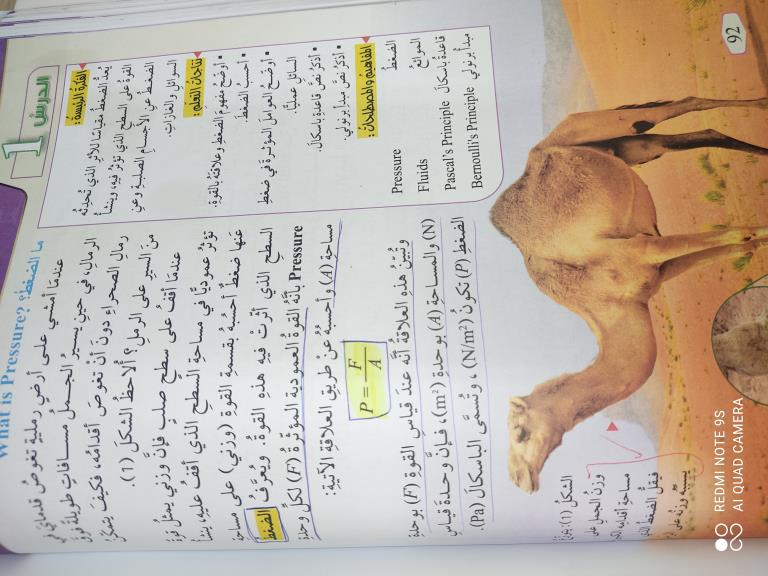 الدرس 1
الفكرة الرئيسة:
يُعدُّ الضغطُ مقياسًا للأثرِ الذي تُحدِثُه
القوةُ على السطحِ الذي تؤثرُ فيهِ، وينشأُ
الضغطُ عنِ الأجسامِ الصلبةِ وعنِ
السوائلِ والغازاتِ.
نتاجات التعلم:
• أوضّحُ مفهومَ الضغطِ وعلاقتَهُ بالقوةِ.
• أحسبُ الضغطَ.
• أوضّحُ العواملَ المؤثرةَ في ضغطِ
السائلِ عمليًّا.
• أذكرُ نصَّ قاعدةِ باسكالَ.
• أذكرُ نصَّ مبدأِ برنولي.
المفاهيم والمصطلحات:
الضغطُ Pressure
الموائعُ Fluids
قاعدةُ باسكالَ Pascal's Principle
مبدأُ برنولي Bernoulli's Principle
ما الضغطُ؟ What is Pressure?
عندَما أمشي على أرضٍ رمليةٍ تغوصُ قدمايَ في
الرمالِ، في حينِ يسيرُ الجملُ مسافاتٍ طويلةً فوقَ
رمالِ الصحراءِ دونَ أنْ تغوصَ أقدامُه، فكيفَ يتمكنُ
منَ السيرِ على الرملِ؟ ألاحظُ الشكلَ (1).
عندَما أقفُ على سطحٍ صلبٍ فإنَّ وزني يمثلُ قوةً
تؤثرُ عموديًّا في مساحةِ السطحِ الذي أقفُ عليهِ، ينشأُ
عنها ضغطٌ أحسبُهُ بقسمةِ القوةِ (وزني) على مساحةِ
السطحِ الذي أثرتْ فيهِ هذهِ القوةُ. ويُعرَّفُ الضغطُ
Pressure بأنَّهُ القوةُ العموديةُ المؤثرةُ (F) لكلِّ وحدةِ
مساحةٍ (A) وأحسبُهُ عنْ طريقِ العلاقةِ الآتيةِ:
P = F/A
وتُبيّنُ هذهِ العلاقةُ أنَّهُ عندَ قياسِ القوةِ (F) بوحدةِ
(N) والمساحةِ (A) بوحدةِ (m²)، فإنَّ وحدةَ قياسِ
الضغطِ (P) تكونُ (N/m²)، وتُسمّى الباسكالَ (Pa).
الشكلُ (1):
وزنُ الجملِ على
مساحةِ أقدامِهِ
فيقلُّ الضغطُ
يسببُه وزنُهُ على
92
REDMI NOTE 9S
AI QUAD CAMERA